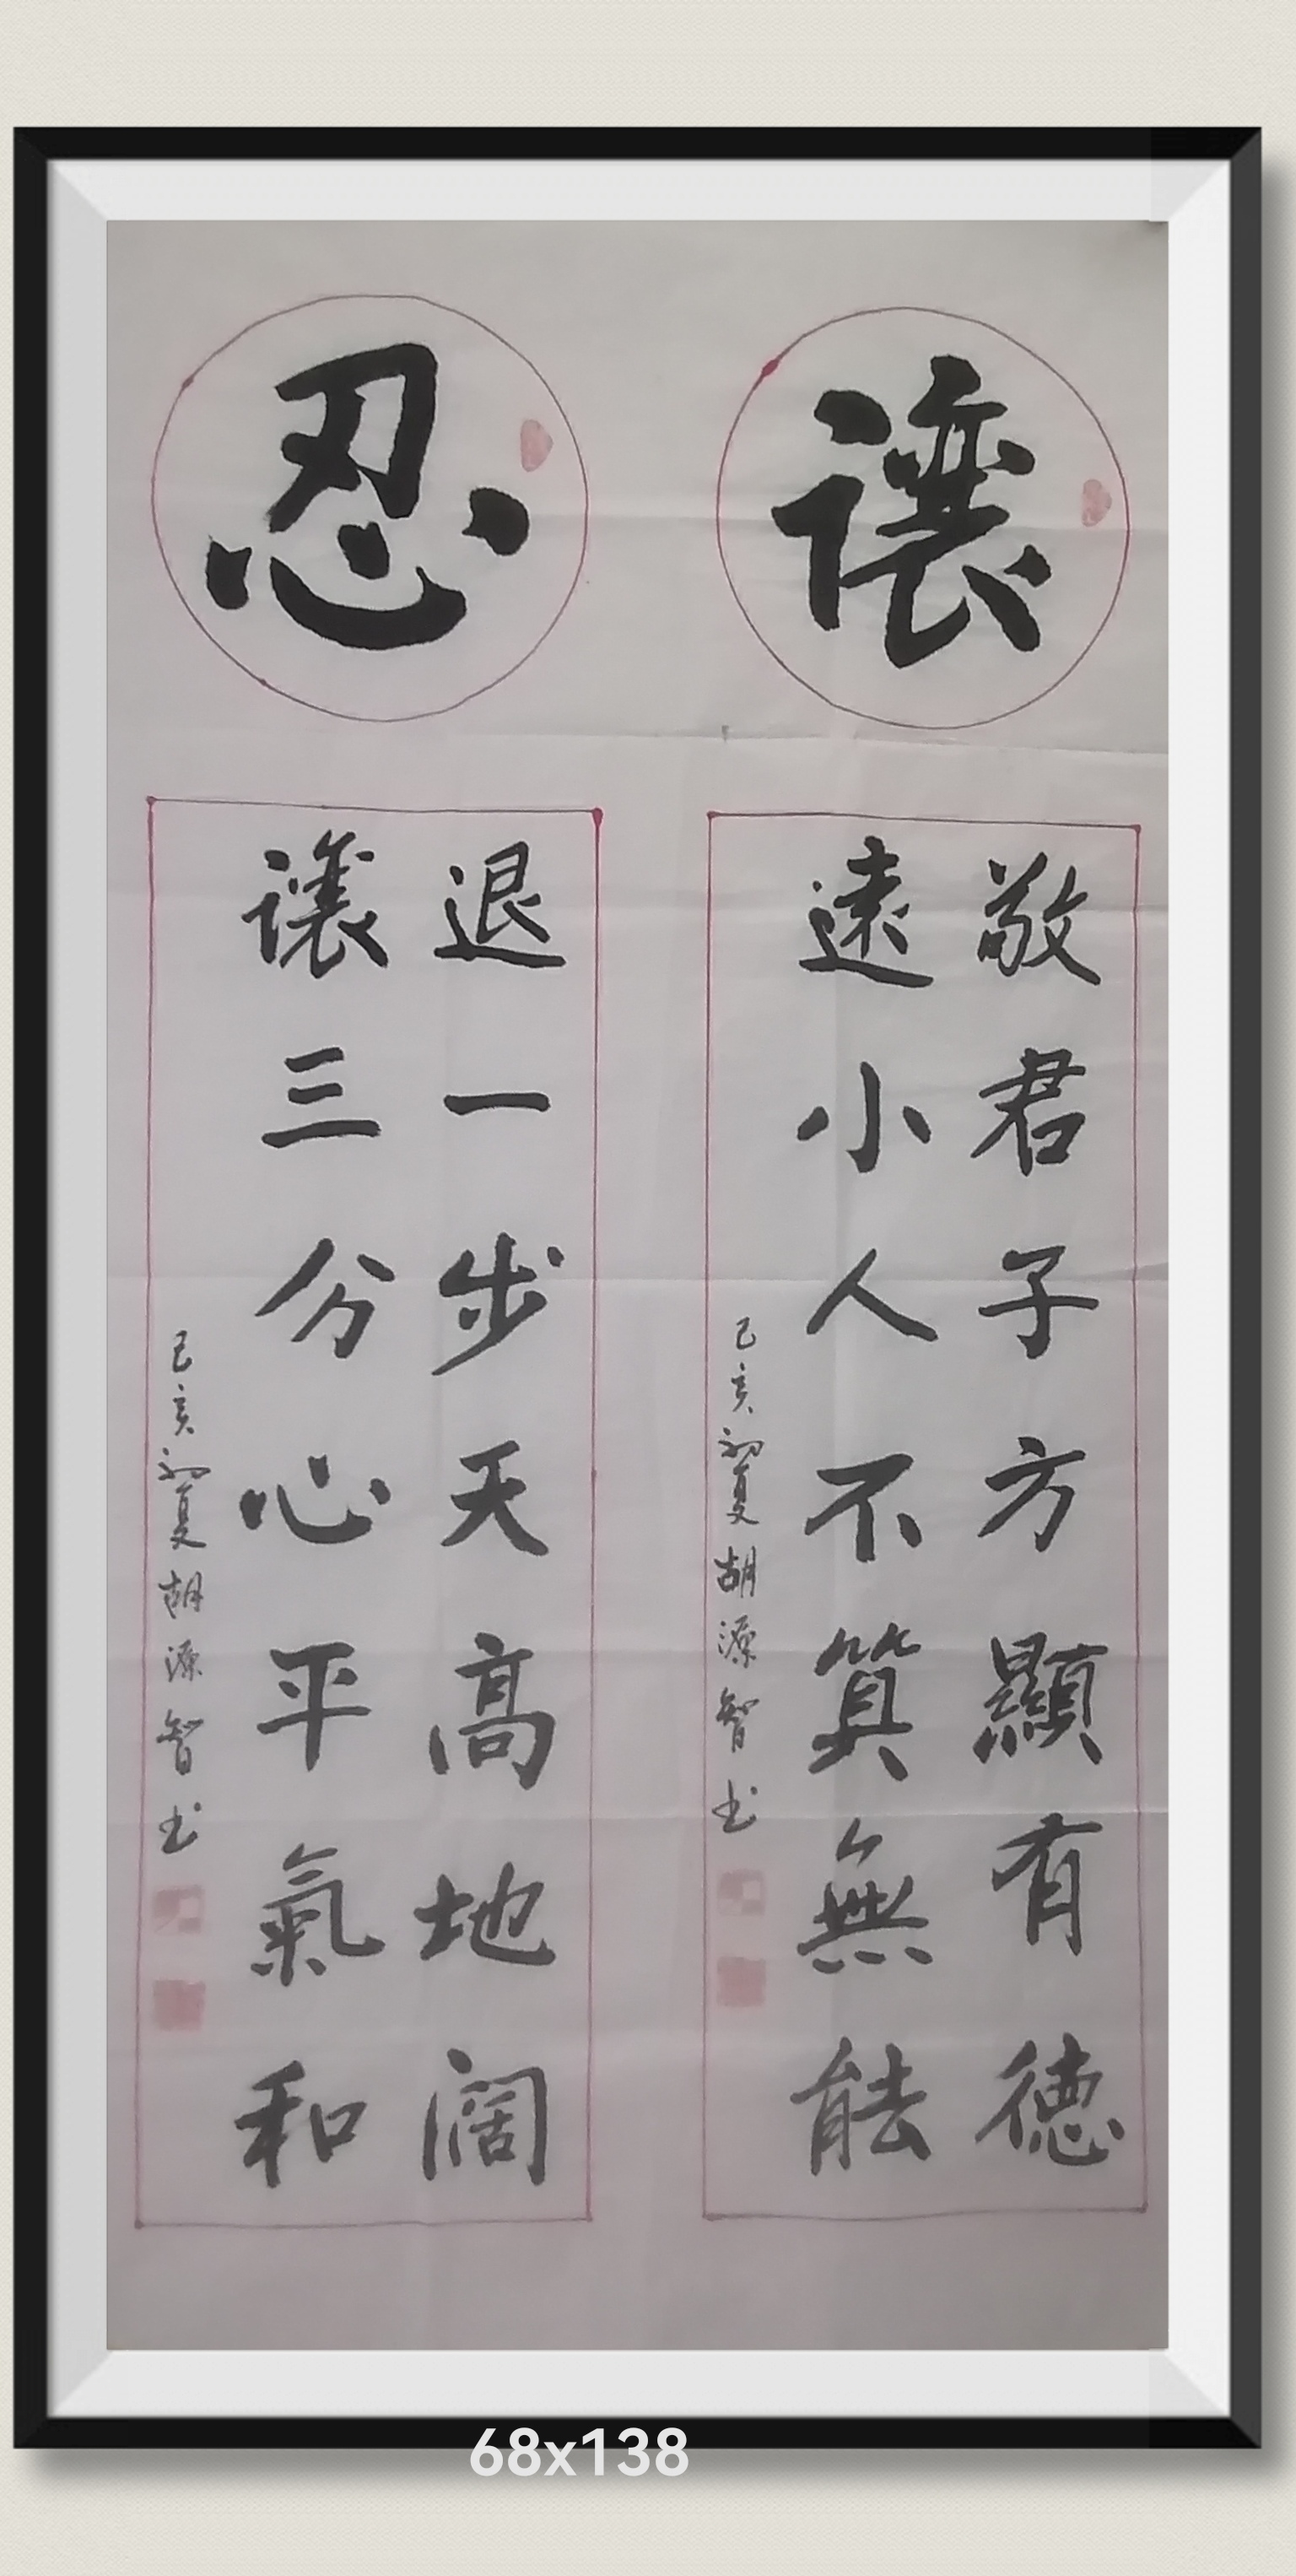 讓
敬君子方顯有德
遠小人不算無能
己亥初夏胡源智书
忍
退一步天高地阔
讓三分心平氣和
己亥初夏胡源智书
68x138